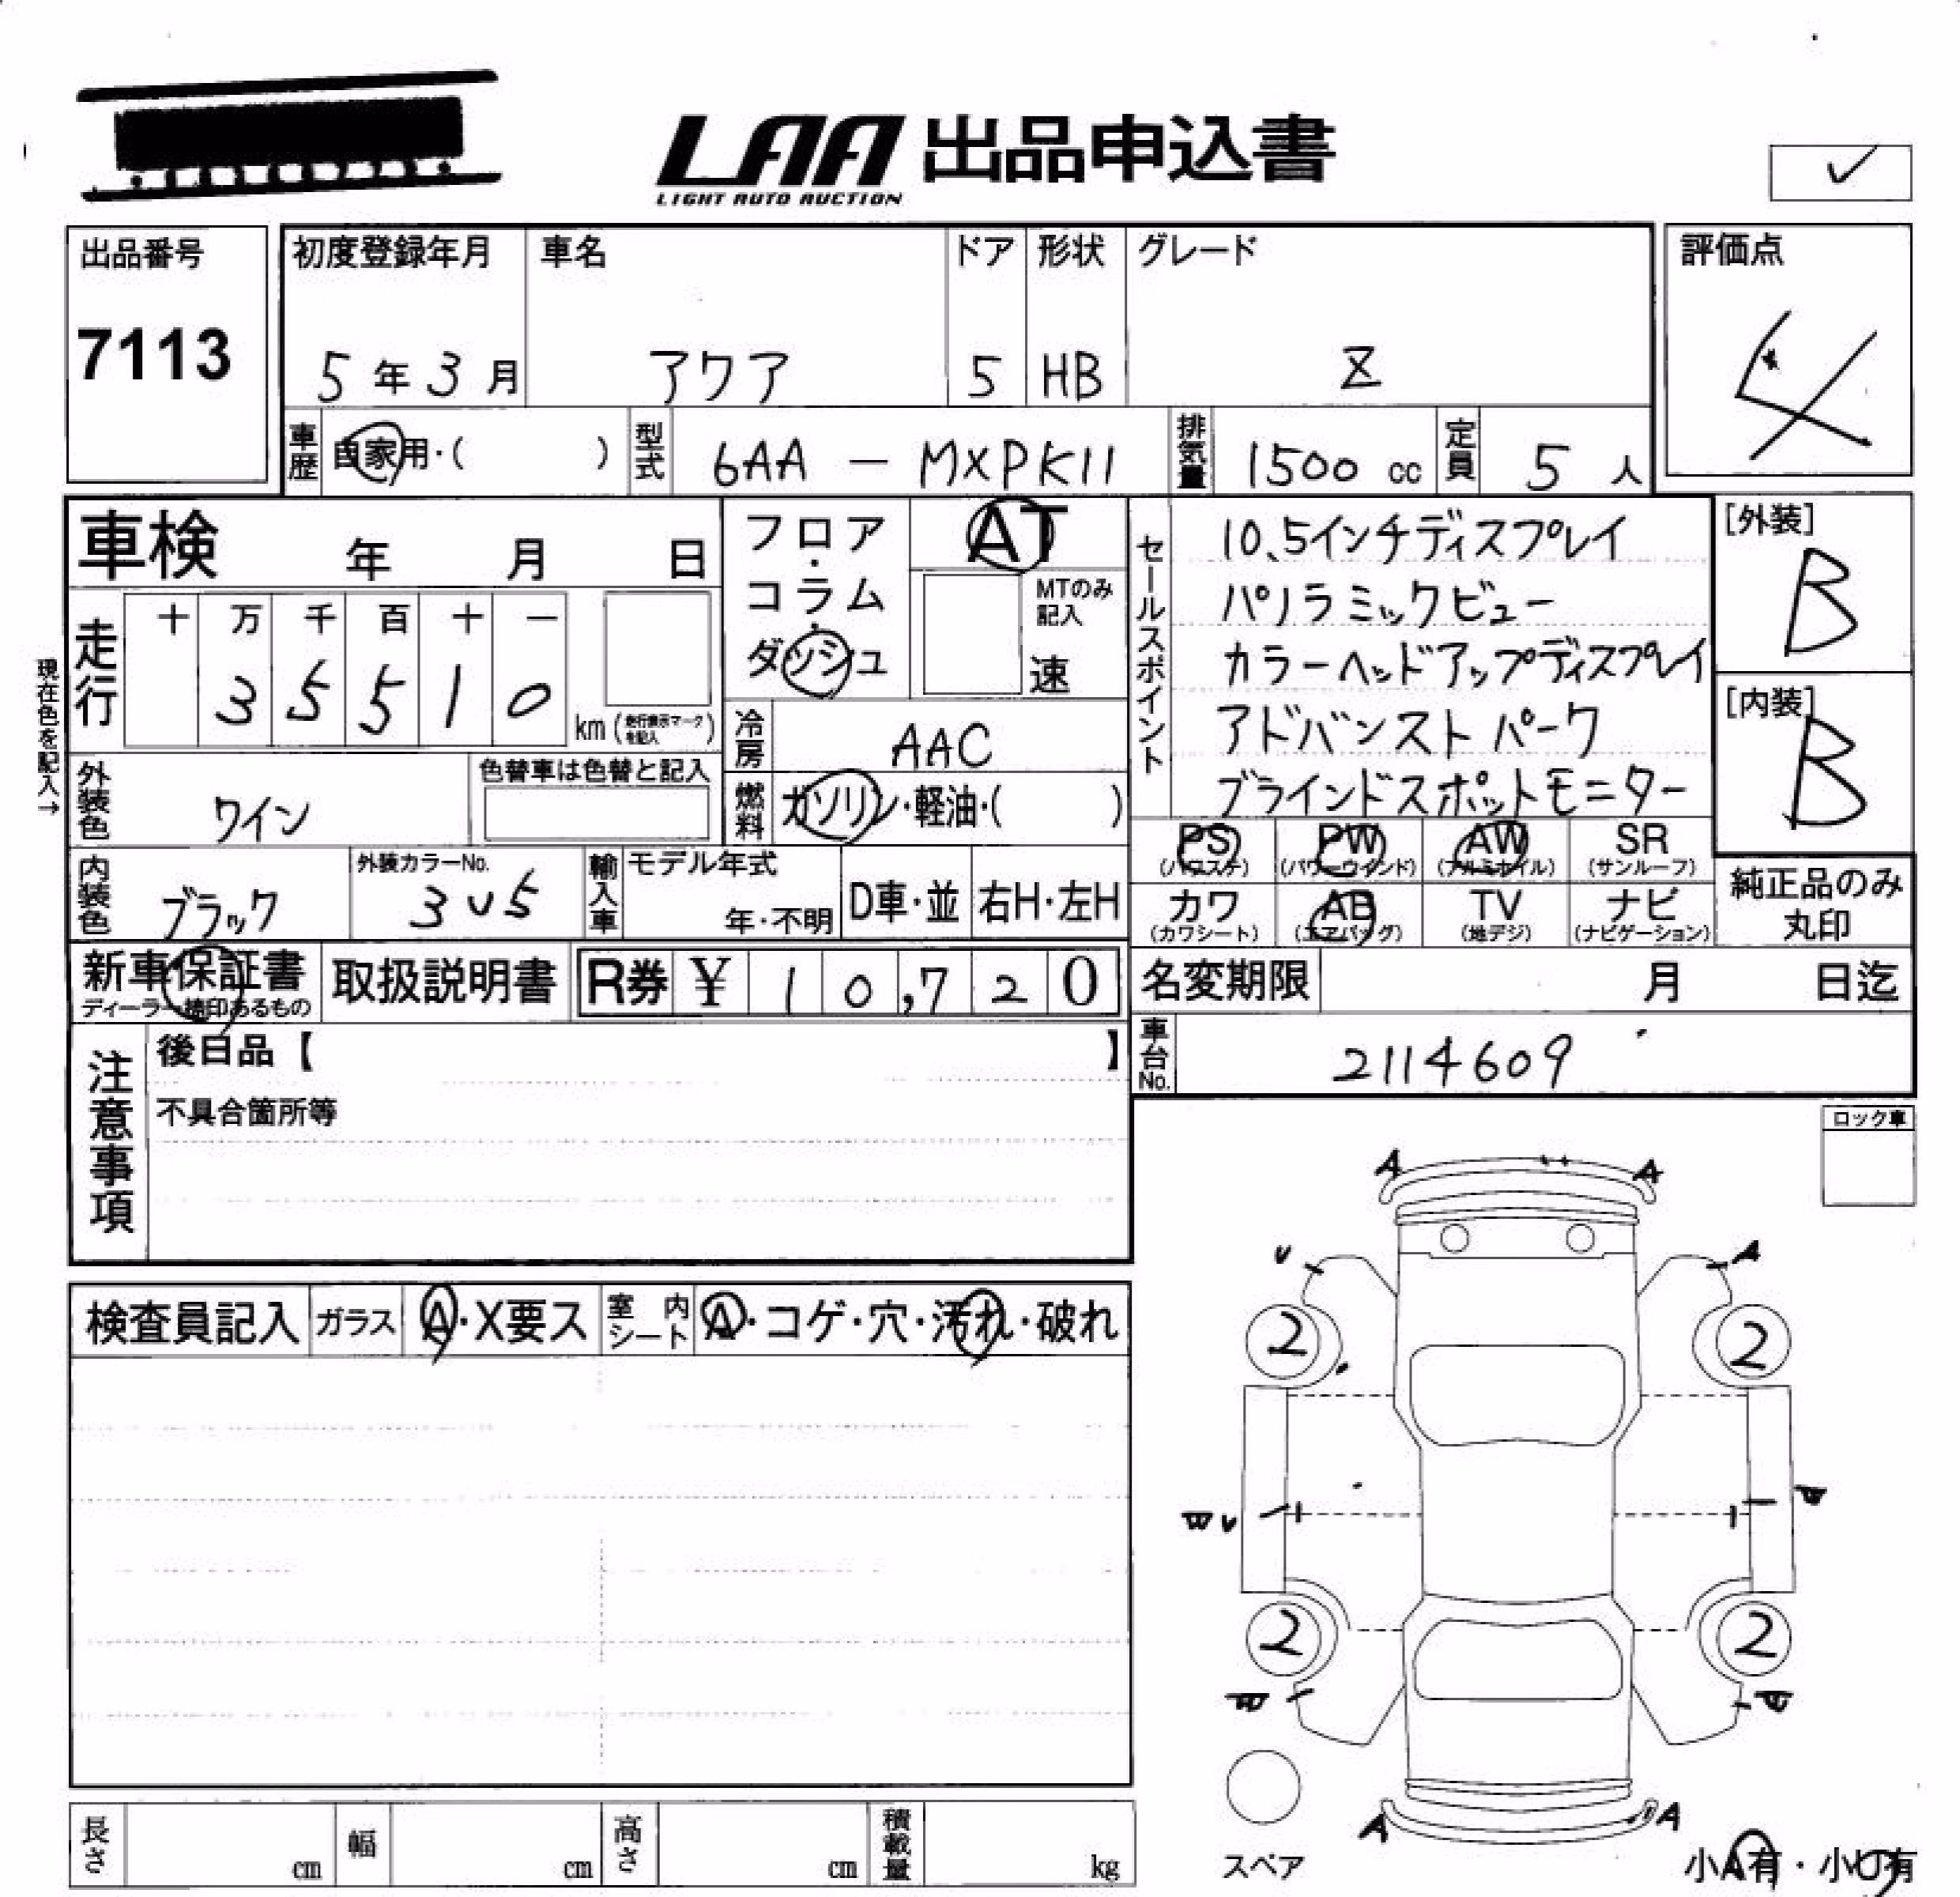 LAA 出品申込書
LIGHT AUTO AUCTION
✓
出品番号
7113
初度登録年月
5年3月
車名
アクア
ドア
5
形状
HB
グレード
Z
評価点
4
車歴
自家用・( )
型式
6AA - MXPK11
排気量
1500 cc
定員
5 人
車検 年 月 日
フロア・
コラム・
ダッシュ
AT
MTのみ
記入
速
セールスポイント
10.5インチディスプレイ
パノラミックビュー
カラーヘッドアップディスプレイ
アドバンストパーク
ブラインドスポットモニター
[外装]
B
[内装]
B
現在色を記入→
走行
十 万 千 百 十 一
3 5 5 1 0
km (走行表示マークを記入)
冷房
AAC
燃料
ガソリン・軽油・( )
外装色
ワイン
色替車は色替と記入
内装色
ブラック
外装カラーNo.
3U5
輸入車
モデル年式
年・不明
D車・並
右H・左H
PS
(パワステ)
PW
(パワーウインド)
AW
(アルミホイル)
SR
(サンルーフ)
カワ
(カワシート)
AB
(エアバッグ)
TV
(地デジ)
ナビ
(ナビゲーション)
純正品のみ
丸印
新車保証書
ディーラー捺印あるもの
取扱説明書
R券 ¥ 1 0,7 2 0
名変期限 月 日迄
車台No.
2114609
注意事項
後日品【 】
不具合箇所等
ロック車
検査員記入
ガラス
A・X要ス
室内
シート
A・コゲ・穴・汚れ・破れ
A A
U A
2 2
W U W
2 2
W W
A A
スペア
小A有・小U有
長さ cm
幅 cm
高さ cm
積載量 kg